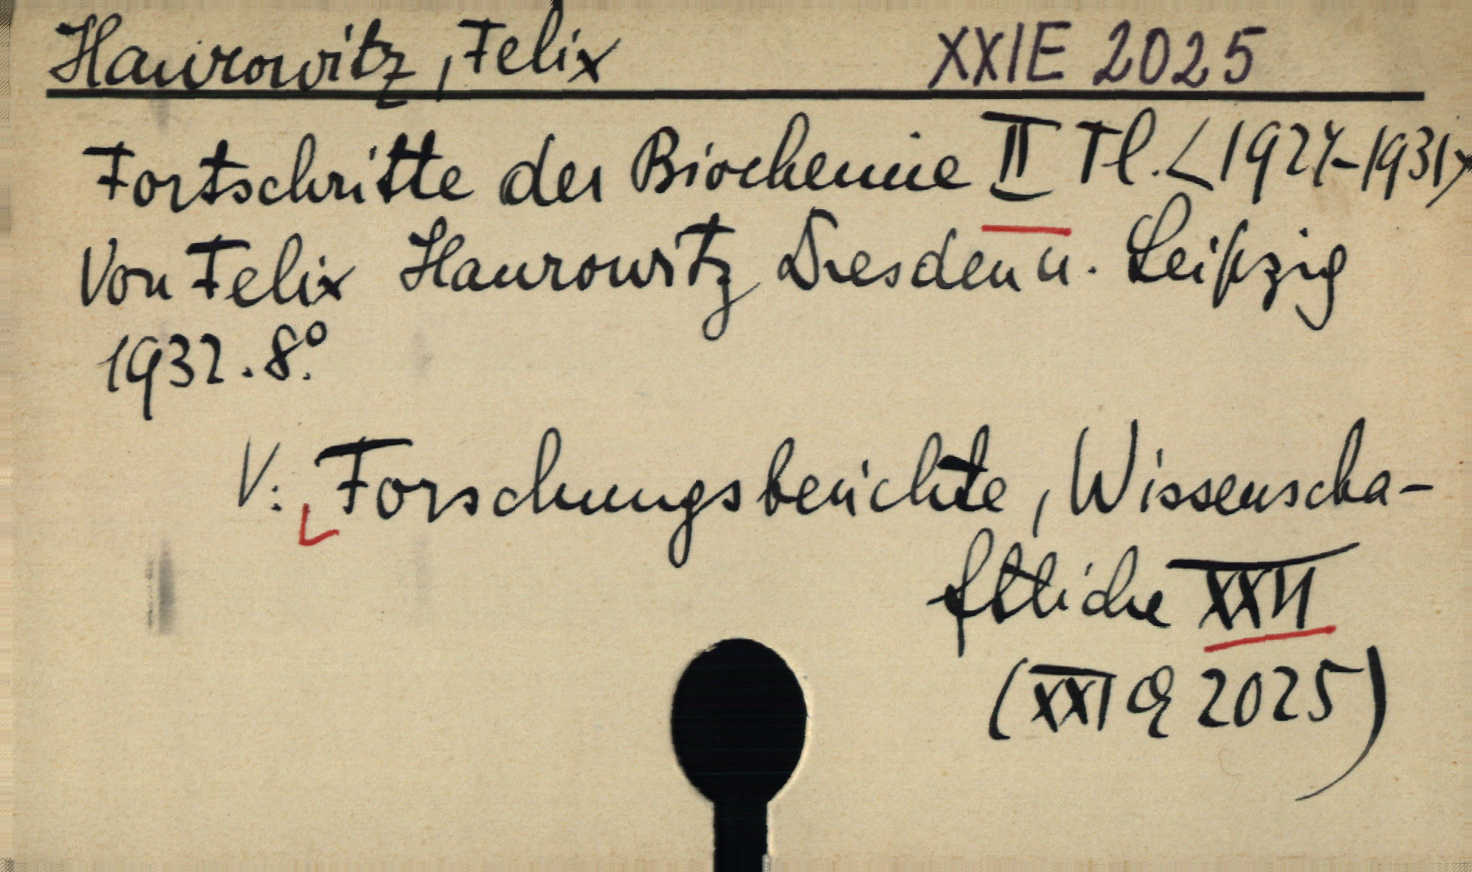 Haurowitz, Felix XXIE 2025
Fortschritte der Biochemie II Tl. <1924-1931>
Von Felix Haurowitz Dresden u. Leipzig
1932. 8°.
V: Forschungsberichte, Wissenscha-
ftliche XXVI
(XXI 2025)